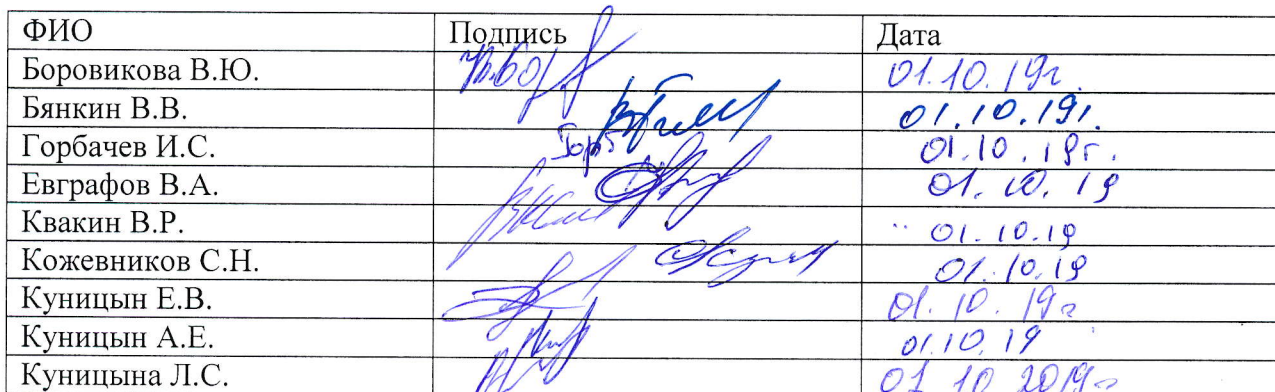 ФИО Подпись Дата
Боровикова В.Ю. 01.10.19г.
Бянкин В.В. 01.10.19г.
Горбачев И.С. Горб 01.10.19г.
Евграфов В.А. 01.10.19
Квакин В.Р. 01.10.19
Кожевников С.Н. 01.10.19
Куницын Е.В. 01.10.19г
Куницын А.Е. 01.10.19
Куницына Л.С. 01 10 2019г